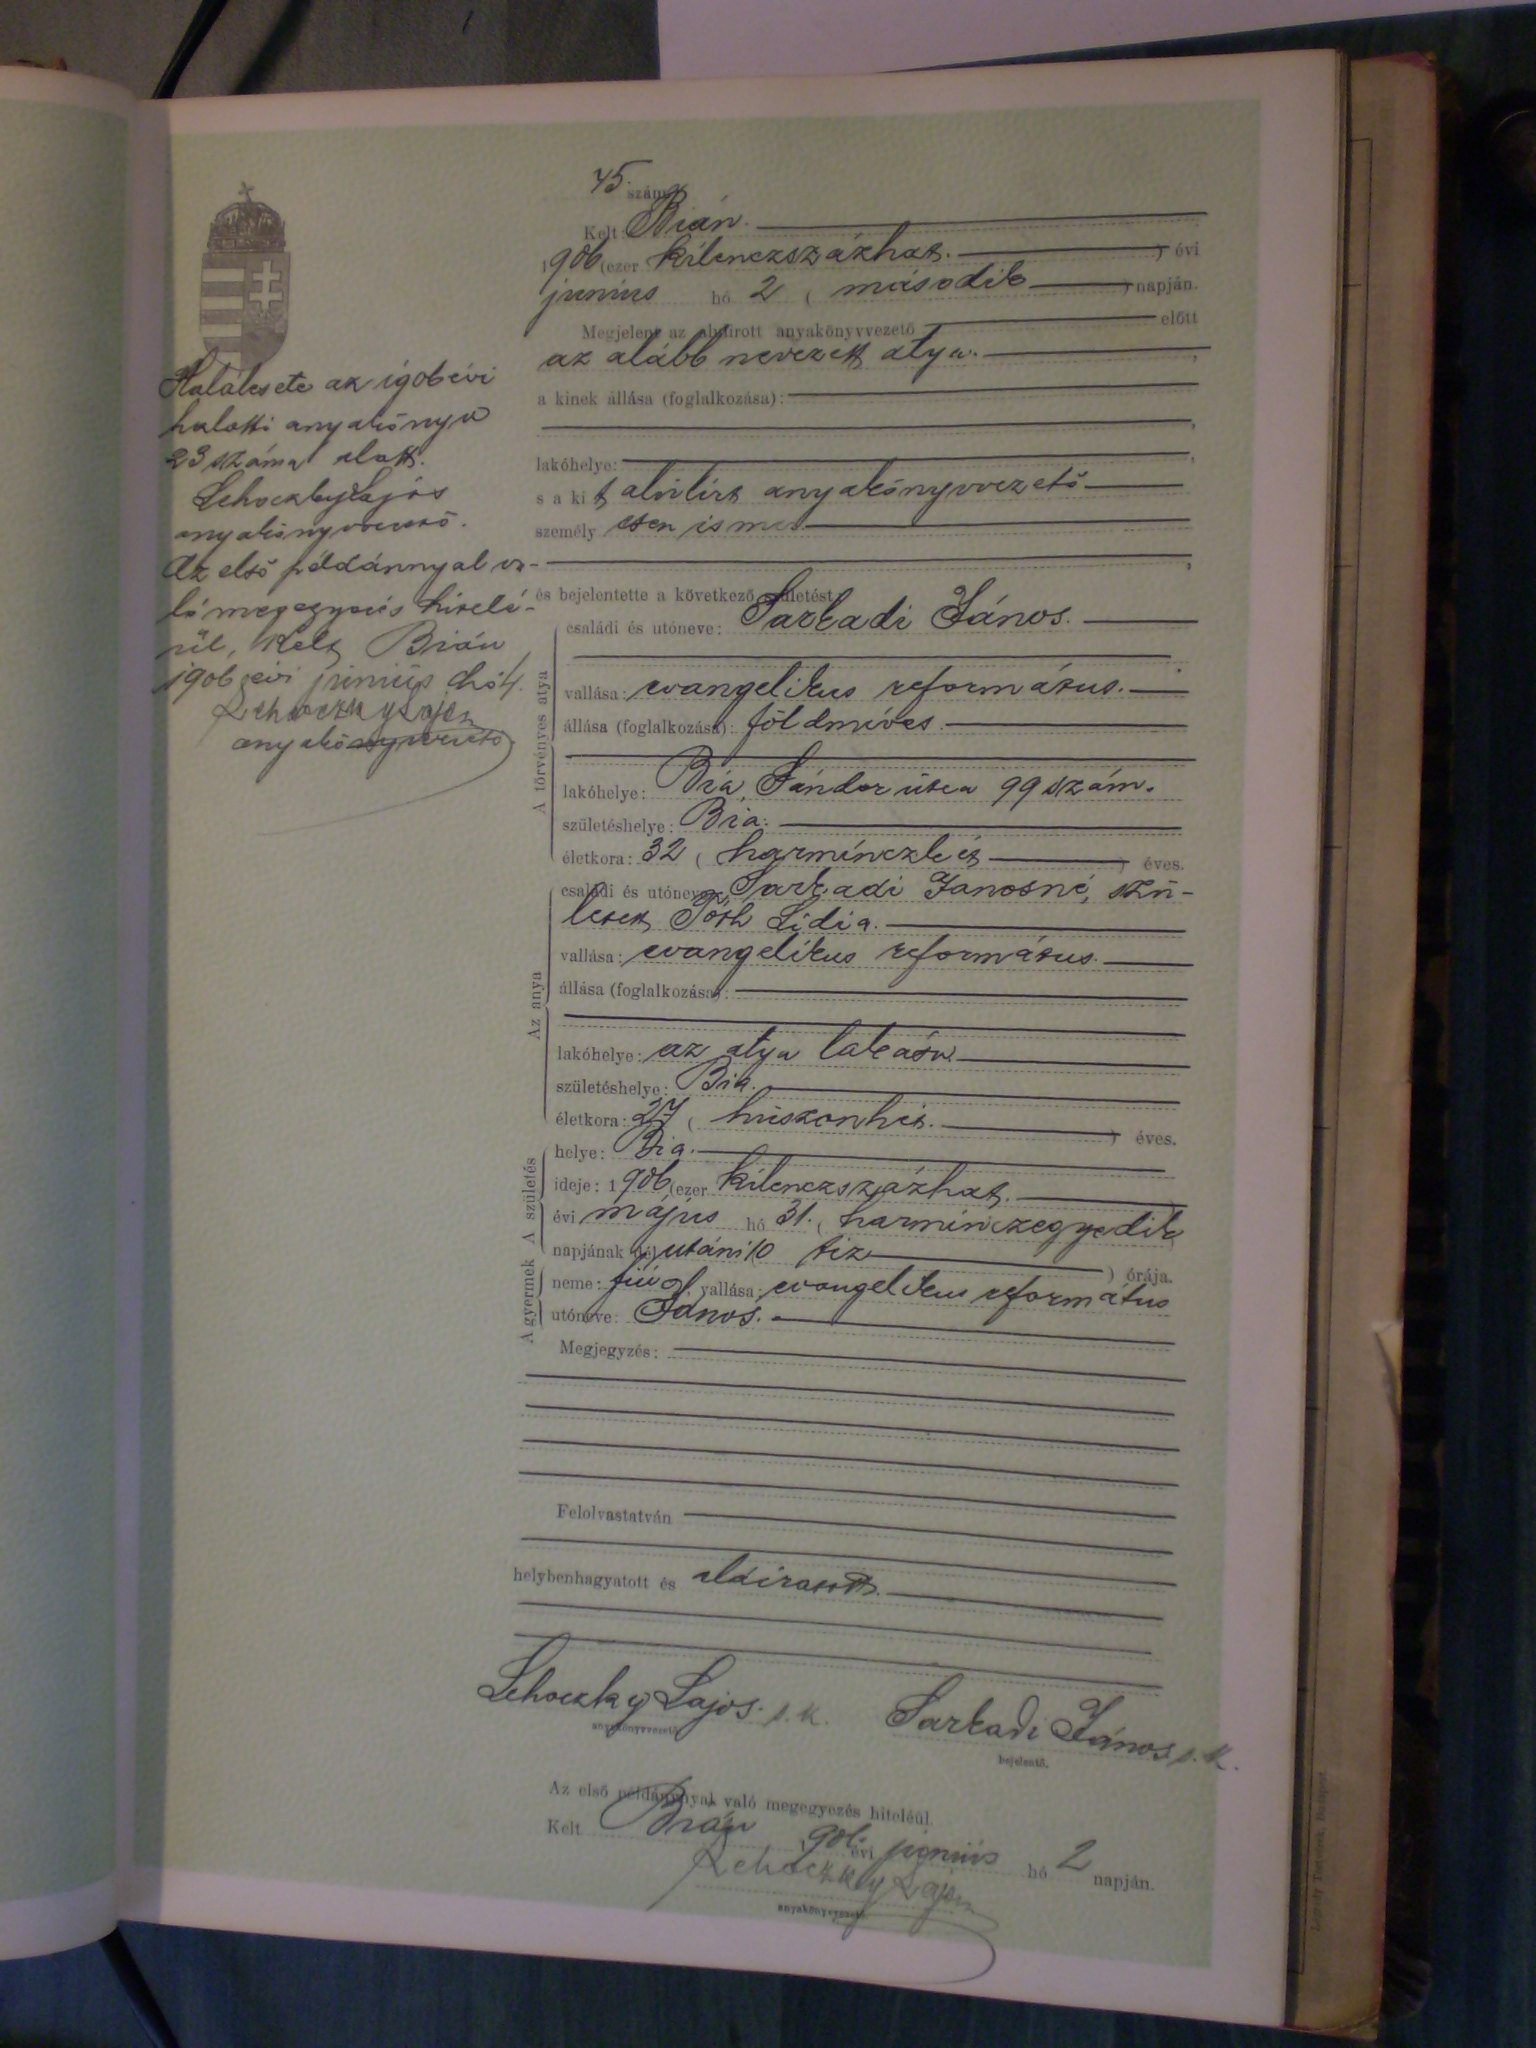 45. szám.
Kelt: Bián.
1906 (ezer kilenczszázhat. ) évi
junius hó 2 ( második ) napján.
Megjelent az alulirott anyakönyvvezető előtt
az alább nevezett atya. ,
a kinek állása (foglalkozása):
,
lakóhelye: ,
s a kit alulirt anyakönyvvezető
személyesen ismer
,
és bejelentette a következő születést:
A törvényes atya
családi és utóneve: Sarkadi János.
vallása: evangelikus református.
állása (foglalkozása): földmíves.
lakóhelye: Bia, Sándor utca 99 szám.
születéshelye: Bia.
életkora: 32 ( harminczkét ) éves.
Az anya
családi és utóneve: Sarkadi Janosné, szü-
letett Tóth Lidia.
vallása: evangelikus református.
állása (foglalkozása):
lakóhelye: az atya lakása.
születéshelye: Bia.
életkora: 27 ( huszonhét. ) éves.
A születés
helye: Bia.
ideje: 1906 (ezer kilenczszázhat. )
évi május hó 31. ( harminczegyedik )
napjának délutáni 10 tiz ) órája.
A gyermek
neme: fiú vallása: evangelikus református
utóneve: János.
Megjegyzés:
Felolvastatván
helybenhagyatott és aláiratott.
Lehoczky Lajos. s. k.
anyakönyvvezető.
Sarkadi János s. k.
bejelentő.
Az első példánynyal való megegyezés hiteléül.
Kelt Bián 1906 évi junius hó 2 napján.
Lehoczky Lajos
anyakönyvvezető.
Halálesete az 1906 évi
halotti anyakönyv
23 száma alatt.
Lehoczky Lajos
anyakönyvvezető.
Az első példánnyal va-
ló megegyezés hitelé-
ül, Kelt Bián
1906 évi junius hó 4.
Lehoczky Lajos
anyakönyvvezető